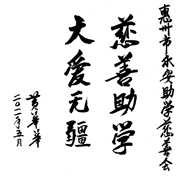 惠州市永安助学慈善会
慈善助学
大爱无疆
黄华华
二〇二一年五月